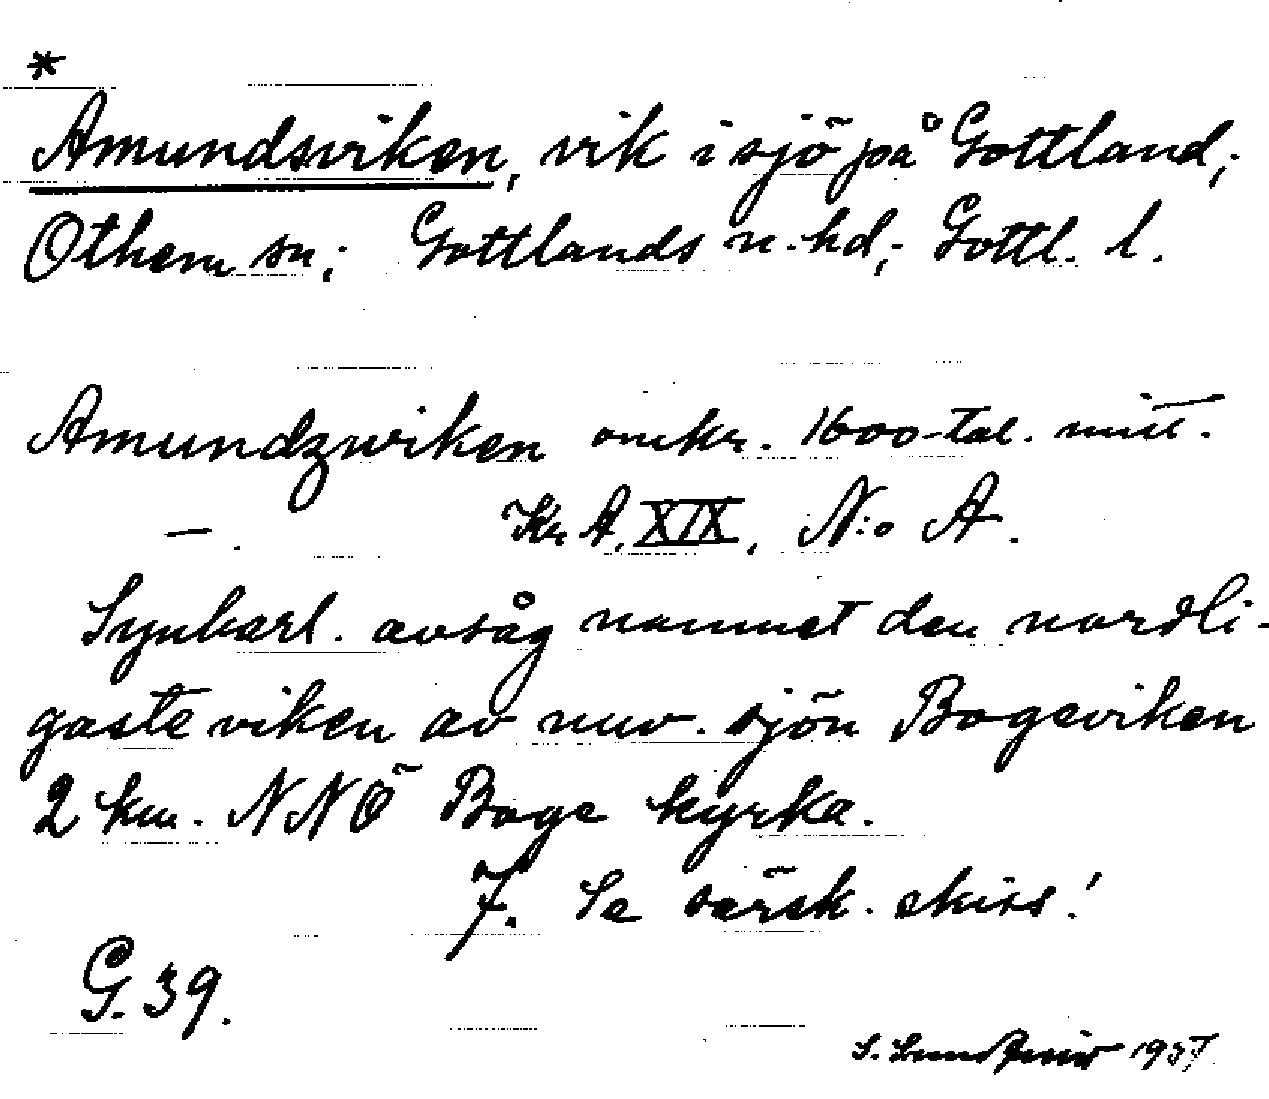 *
Amundsviken, vik i sjö på Gottland;
Othem sn; Gottlands n. hd; Gottl. l.
Amundzwiken omkr. 1600-tal. mitt.
—. Kr A, XIX, N:o A.
Synbarl. avsåg namnet den nordli-
gaste viken av nuv. sjön Bogeviken
2 km. NNÖ Boge kyrka.
7. Se särsk. skiss!
G. 39.
S. 1937